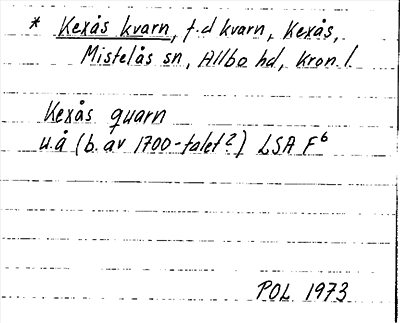 * Kexås kvarn, f.d kvarn, Kexås,
Mistelås sn, Allbo hd, Kron.l.
Kexås quarn
u.å (b. av 1700-talet?) LSA F6
POL 1973